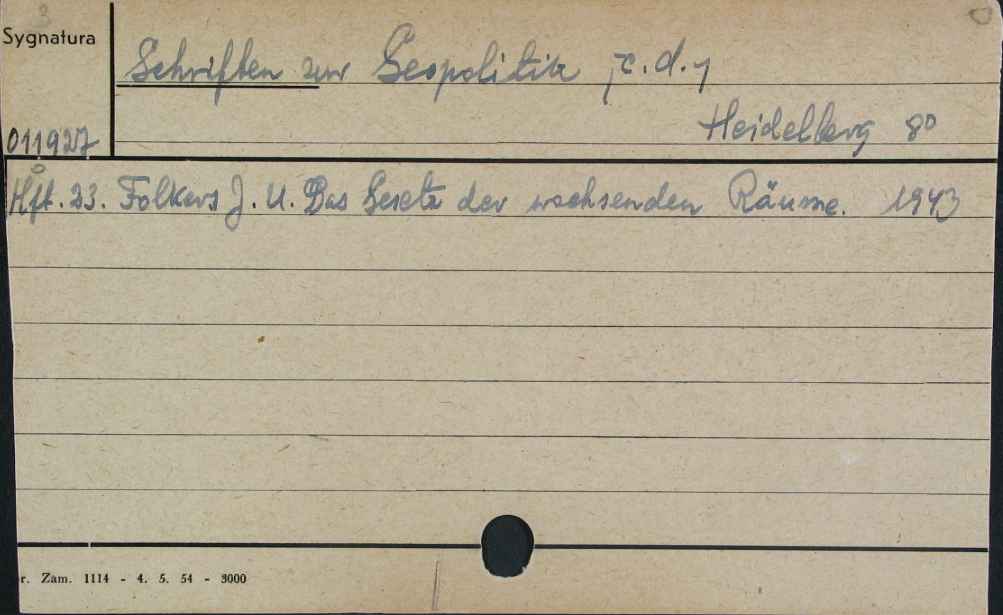 Sygnatura
Schriften zur Geopolitik /c.d./
Heidelberg 8º
011927
Hft. 23. Folkers J. U. Das Gesetz der wachsenden Räume. 1943
r. Zam. 1114 - 4. 5. 54 - 3000